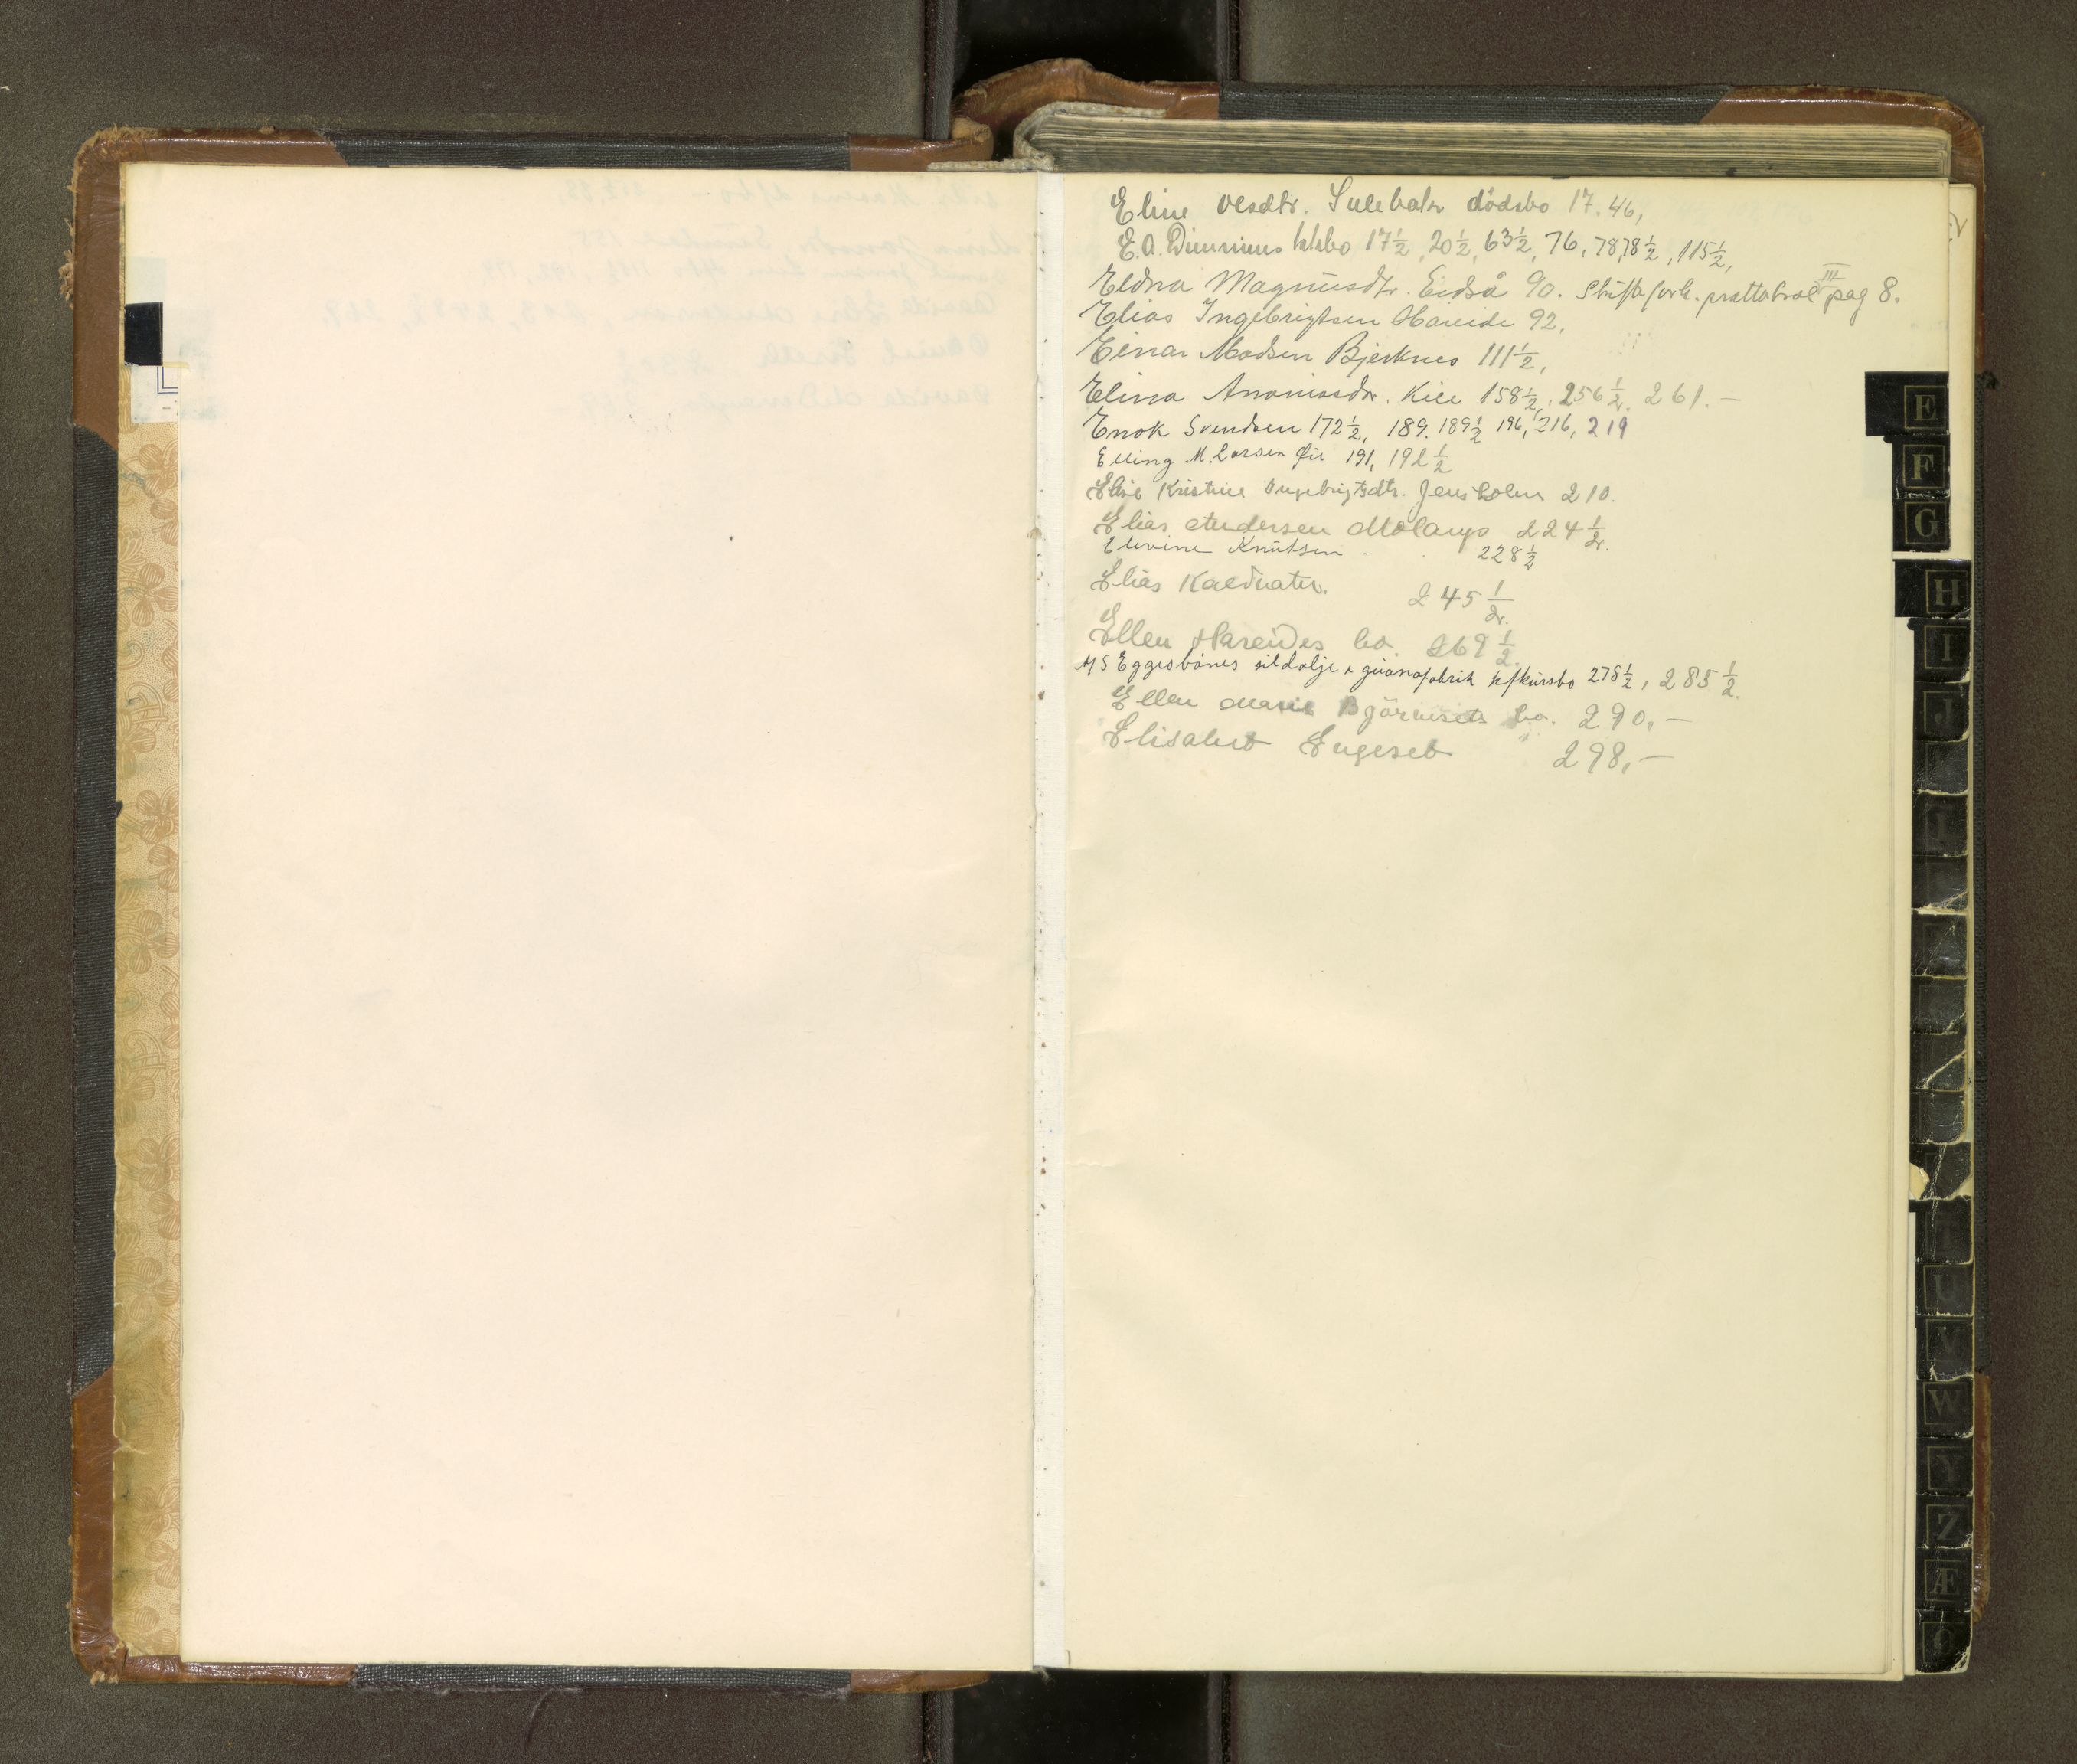 Eline Olsdtr. Sulebakk dödsbo 17. 46,
E. A. Dimmens k/kbo 17½, 20½, 63½, 76, 78, 78½, 115½,
Eldna Magnusdtr. Eidså 90. Skifteforh. prottokol III pag 8.
Elias Ingebrigtsen Hareide 92.
Einar Madsen Bjerknes 111½,
Elina Ananiasdr. Kile 158½, 256½. 261.—
Enok Svendsen 172½, 189. 189½ 196, 216, 219
Elling M. Larsen Øie 191, 192½
Elise Kristine Ingebrigtsdtr. Jensholm 210.
Elias Andersen Moldnes 224½.
Elevine Knutsen. 228½
Elias Kaldvatn. 245½.
Ellen Hareides bo. 269½.
A/S Eggesbønes sildolje & guanofabrik k/kursbo 278½, 285½.
Ellen Marie Bjørnsets bo. 290.—
Elisabet Engeset 298,—
E
F
G
H
I
J
U
V
W
Y
Z
Æ
Ø